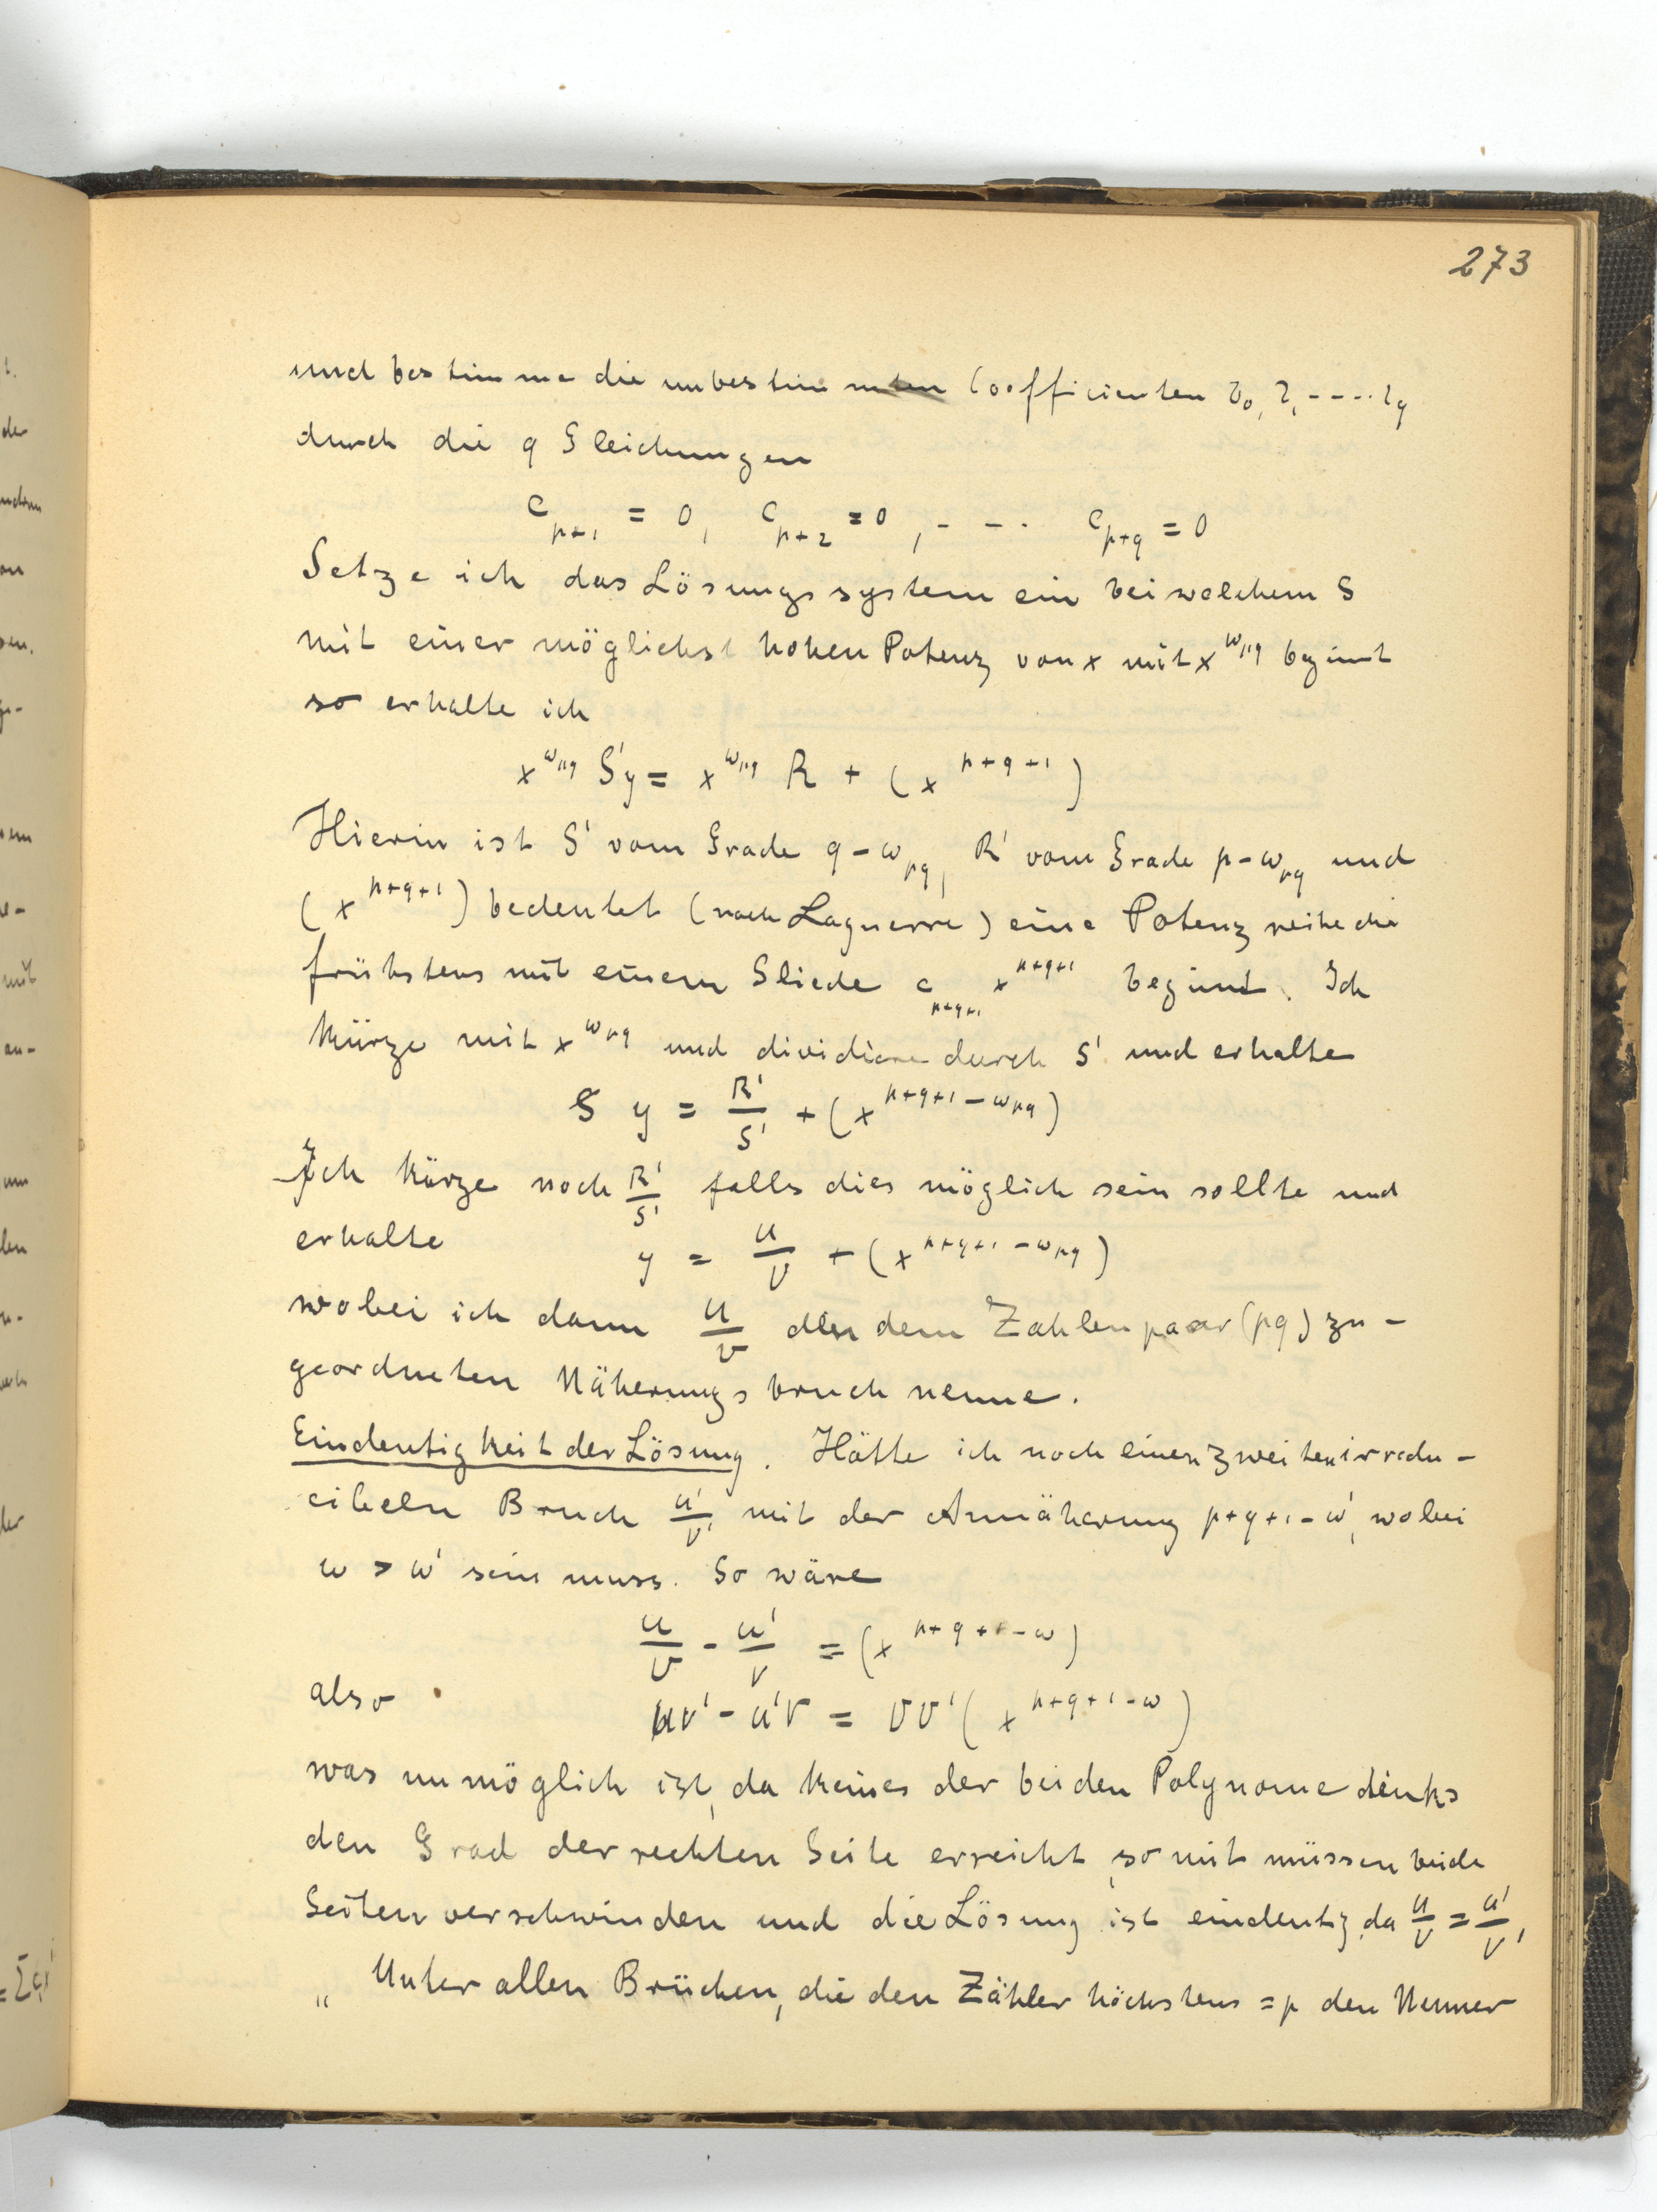 273
und bestimme die unbestimmten Coefficienten b₀, b₁ ---- b_q
durch die q Gleichungen
c_{p+1} = 0, c_{p+2} = 0, - - · c_{p+q} = 0
Setze ich das Lösungssystem ein bei welchem S
mit einer möglichst hohen Potenz von x mit x^{ω_{pq}} beginnt
so erhalte ich
x^{ω_{pq}} S'y = x^{ω_{pq}} R + (x^{p+q+1})
Hierin ist S' vom Grade q-ω_{pq}, R' vom Grade p-ω_{pq} und
(x^{p+q+1}) bedeutet (nach Laguerre) eine Potenzreihe die
frühstens mit einem Gliede c_{p+q+1} x^{p+q+1} beginnt. Ich
kürze mit x^{ω_{pq}} und dividiere durch S' und erhalte
S y = R'/S' + (x^{p+q+1-ω_{pq}})
Ich kürze noch R'/S' falls dies möglich sein sollte und
erhalte y = U/V + (x^{p+q+1-ω_{pq}})
wobei ich dann U/V den dem Zahlenpaar (pq) zu-
geordneten Näherungsbruch nenne.
Eindeutigkeit der Lösung. Hätte ich noch einen zweiten irredu-
cibeln Bruch U'/V' mit der Annäherung p+q+1-ω', wobei
ω > ω' sein muss. So wäre
U/V - U'/V = (x^{p+q+1-ω})
also UV' - U'V = VV' (x^{p+q+1-ω})
was unmöglich ist, da keines der beiden Polynome links
den Grad der rechten Seite erreicht, somit müssen beide
Seiten verschwinden und die Lösung ist eindeutig, da U/V = U'/V'
„ Unter allen Brüchen, die den Zähler höchstens = p den Nenner